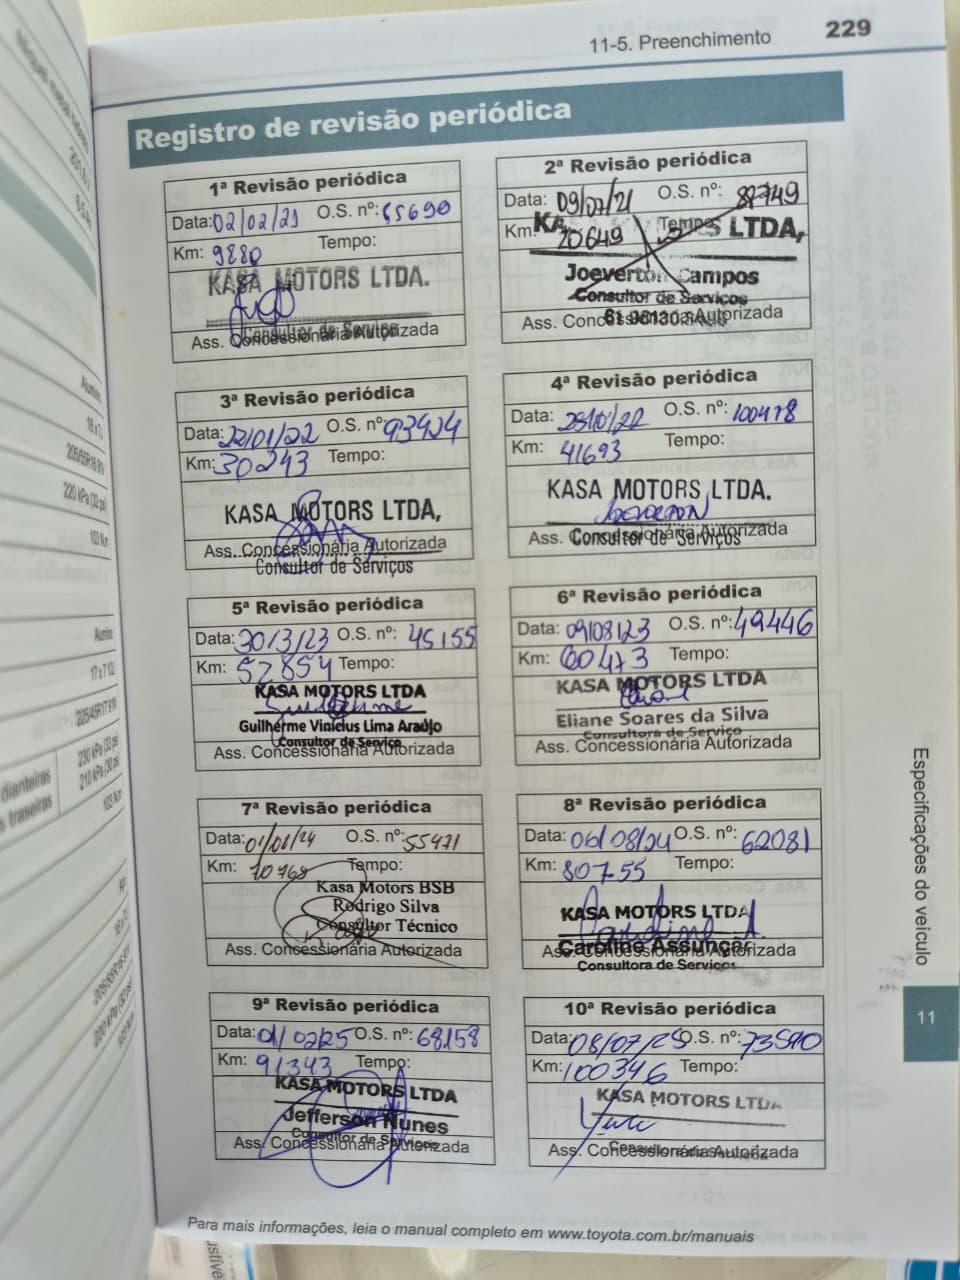 11-5. Preenchimento 229
Registro de revisão periódica
1ª Revisão periódica
Data: 02/02/21 O.S. nº: 65690
Km: 9880 Tempo:
KASA MOTORS LTDA.
Consultor de Serviço
Ass. Concessionária Autorizada
2ª Revisão periódica
Data: 09/07/21 O.S. nº: 87749
Km: 20649 Tempo:
LTDA,
Joeverton Campos
Consultor de Serviços
Ass. Concessionária Autorizada
3ª Revisão periódica
Data: 22/01/22 O.S. nº 93424
Km: 30243 Tempo:
KASA MOTORS LTDA,
Ass. Concessionária Autorizada
Consultor de Serviços
4ª Revisão periódica
Data: O.S. nº: 100478
Km: 41693 Tempo:
KASA MOTORS LTDA.
Ass. Concessionária Autorizada
Consultor de Serviços
5ª Revisão periódica
Data: 30/3/23 O.S. nº: 45155
Km: 52854 Tempo:
KASA MOTORS LTDA
Guilherme Vinícius Lima Araújo
Consultor de Serviço
Ass. Concessionária Autorizada
6ª Revisão periódica
Data: 09/08/23 O.S. nº: 49446
Km: 60473 Tempo:
KASA MOTORS LTDA
Eliane Soares da Silva
Consultora de Serviço
Ass. Concessionária Autorizada
7ª Revisão periódica
Data: O.S. nº: 55471
Km: 70768 Tempo:
Kasa Motors BSB
Rodrigo Silva
Consultor Técnico
Ass. Concessionária Autorizada
8ª Revisão periódica
Data: 06/08/24 O.S. nº: 62081
Km: 80755 Tempo:
KASA MOTORS LTDA
Caroline Assunção
Ass. Concessionária Autorizada
Consultora de Serviços
9ª Revisão periódica
Data: 01/02/25 O.S. nº: 68158
Km: 91343 Tempo:
KASA MOTORS LTDA
Jefferson Nunes
Consultor de Serviços
Ass. Concessionária Autorizada
10ª Revisão periódica
Data: 08/07/25 O.S. nº: 73590
Km: 100346 Tempo:
KASA MOTORS LTDA
Yuri
Consultora de Serviços
Ass. Concessionária Autorizada
Especificações do veículo
11
Para mais informações, leia o manual completo em www.toyota.com.br/manuais
Alumínio
16 x 7J
205/55R16 91V
220 kPa (32 psi)
103 N·m
Alumínio
225/45R17 91W
230 kPa (33 psi)
210 kPa (30 psi)
dianteiras
traseiras
103 N·m